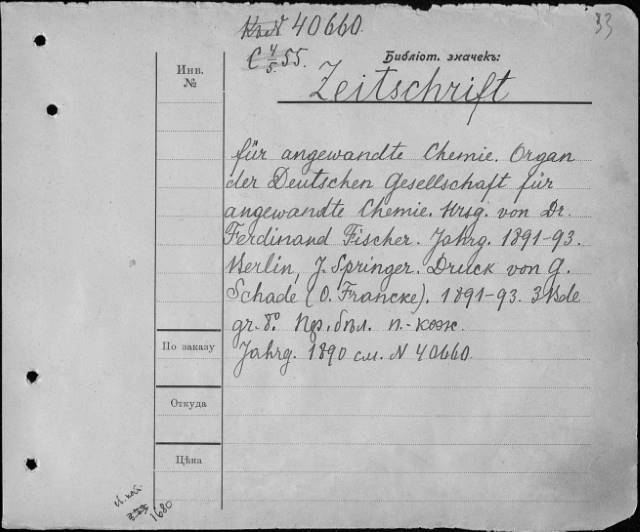 40660.
33
С 4/5 55.
Библіот. значекъ:
Инв.
№
Zeitschrift
für angewandte Chemie. Organ
der Deutschen Gesellschaft für
angewandte Chemie. Hrsg. von Dr.
Ferdinand Fischer. Jahrg. 1891-93.
Berlin, J. Springer. Druck von G.
Schade (O. Francke). 1891-93. 3 Bde
gr. 8º. Пр. бѣл. п.-кож.
По заказу
Jahrg. 1890 см. N 40660.
Откуда
Цѣна
1680